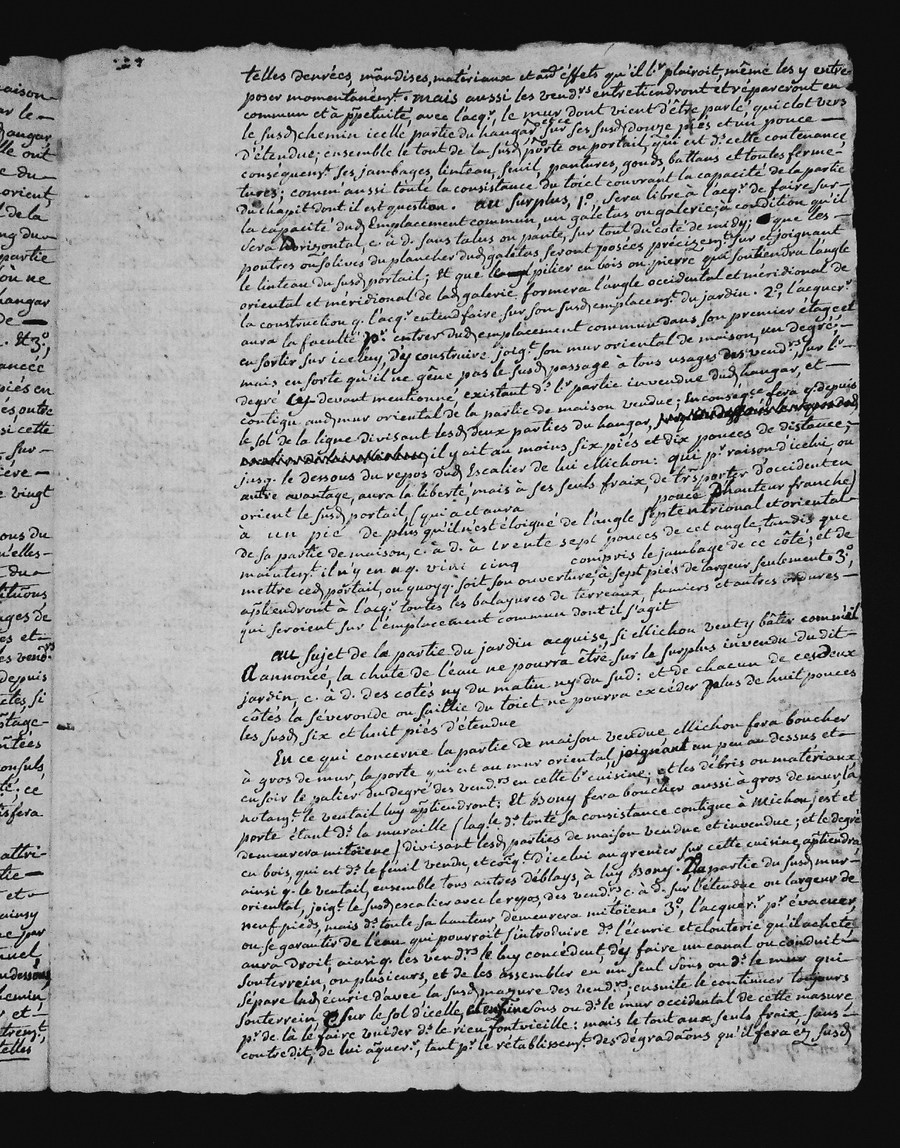 telles denrées, mãndises, matériaux et aut effets qu'il lr plairoit, même les y entre
poser momentanément. mais aussi les vendrs entretiendront et répareront en
commun et à ppétuité, avec l'acqr. le mur dont vient d'être parlé, qui clot vers
le susd chemin icelle partie du hangar, sur ses susd douze piés et un pouce —
d'étendue; ensemble le tout de la susd porte ou portail, qui est dt cette contenance
conséquent ses jambages, linteau, seuil, pantures, gonds, battans et toutes ferme-
tures; comm'aussi toute la consistance du toict couvrant la capacité de la partie
du chapit dont il est question. au surplus, 1o, sera libre à l'acqr de faire sur —
la capacité dud Emplacement commun, un galetas ou galerie, à condition qu'il
sera horizontal, c. à d. sans talus ou pante, sur tout du coté de midy; que les —
poutres ou solives du plancher dud galetas seront posées précisemt sur et joignant
le linteau du susd portail; Et que le pilier en bois ou pierre qui soutiendra l'angle
oriental et méridional de lad galerie, formera l'angle occidental et méridional de
la construction q. l'acqr entend faire sur son susd emplacemt du jardin. 2o, l'acquerr
aura la faculté pr entrer dud emplacement commun dans son premier étage et
en sortir sur iceluy, d'y construire joigt son mur oriental de maison, un degré; —
mais en sorte qu'il ne gêne pas le susd passage à tous usages des vendrs, sur lr —
degré cy-devant mentionné, existant dt lr partie invendue dud hangar, et —
contigu aud mur oriental de la partie de maison vendue; En conséqce fera q. depuis
le sol de la ligne divisant lesd deux parties du hangar,
il y ait au moins six piés et dix pouces de distance; —
jusq. le dessous du repos dud Escalier de lui Michon: qui pr raison d'icelui, ou
autre avantage, aura la liberté, mais à ses seuls fraix, de trãsporter d'occident en
orient le susd portail (qui a et aura pouce d'hauteur franche)
à un pié de plus qu'il n'est éloigné de l'angle septentrional et oriental
de sa partie de maison, c. à d. à trente sept pouces de cet angle, tandis que
maintent il n'y en a q. vint cinq compris le jambage de ce côté; et de
mettre ced portail, ou quoyq. soit son ouverture, à sept piés de largeur seulement. 3o,
aptiendront à l'acqr toutes les balayures de terreaux, fumiers et autres ordures —
qui seroient sur l'emplacement commun dont il s'agit
au sujet de la partie du jardin acquise, si Michon veut y bâtir comm'il
a annoncé, la chute de l'eau ne pourra être sur le surplus invendu du dit —
jardin, c. à d. des cotés ny du matin ny du sud: et de chacun de ces deux
côtés la séveronde ou saillie du toict ne pourra excéder plus de huit pouces
les susd six et huit piés d'étendue
En ce qui concerne la partie de maison vendue Michon fera boucher
à gros de mur la porte qui est au mur oriental, joignant un peu au dessus et —
cu soir le palier du degré des vendrs en cette lr cuisine; et les débris ou matériaux
notant le ventail luy aptiendront: Et Bony fera boucher aussi à gros de mur la
porte étant dt la muraille (laqle dt toute sa consistance contigue à Michon, est et
demeurera mitoïene) divisant lesd parties de maison vendue et invendue; et le degré
en bois, qui est dt le feuil vendu, et conigt d'icelui au grenier sur cette cuisine, aptiendra
ainsi q. le ventail, ensemble tous autres déblays, à luy Bony. La partie du susd mur —
oriental, joigt le susd escalier avec le repos, des vendrs, c. à d. sur l'étendue ou largeur de
neuf pieds, mais dt toute sa hauteur demeurera mitoïene 3o, l'acquerr pr évacuer
ou se garantir de l'eau qui pourroit s'introduire dt l'écurie et clouterie qu'il achete
aura droit, ainsi q. les vendrs le luy concédent, d'y faire un canal ou conduit —
souterrein, ou plusieurs, et de les assembler en un seul sous ou dt le mur qui
sépare lad écurie d'avec la susd mazure des vendrs; ensuite le continuer toujours
souterrein sur le sol d'icelle, et enfin sous ou dt le mur occidental de cette masure
pr de là le faire vuider dt le rieu fontvieille: mais le tout aux seuls fraix sans —
contredit, de lui aquerr, tant pr le rétablissemt des dégradãons qu'il fera ez susd